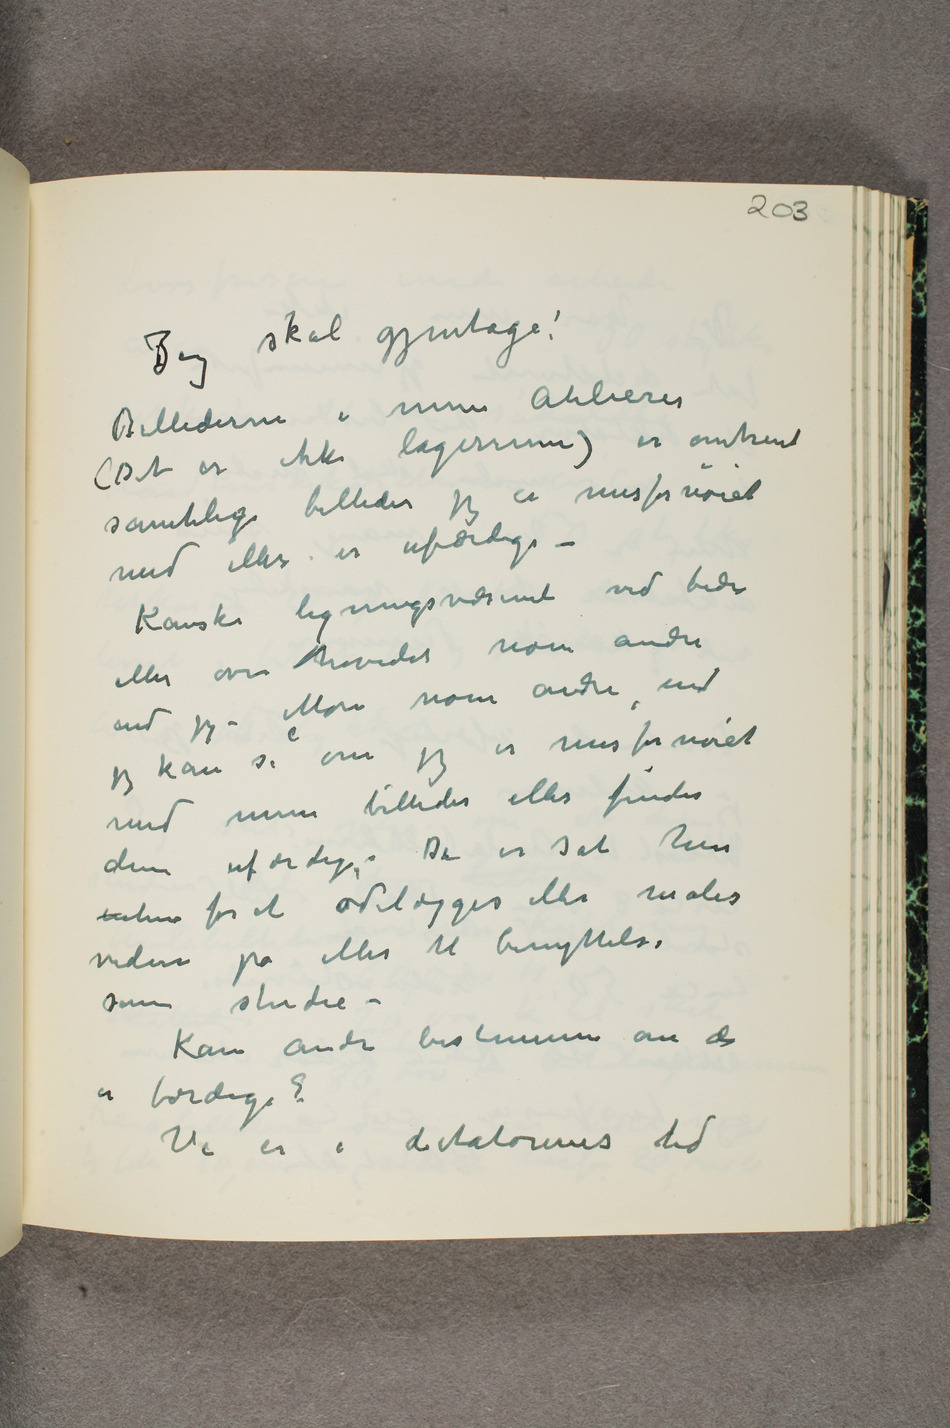 203
Jeg skal gjentage!
Billederne i mine Atelierer
(Det er ikke lagerrum) er omtrent
samtlige billeder jeg er misfornöiet
med eller er ufærdige –
Kanske ligningsvæsenet ved bedre
eller over hovedet noen andre
end jeg – Mon noen andre, end
jeg kan se om jeg er misfornöiet
med mine billeder eller finder
dem ufærdige. De er sat hen
enten for at ödelægges eller males
videre på eller til benyttelse
som studie –
Kan andre bestemme om de
er færdige?
Vi er i diktatorernes tid